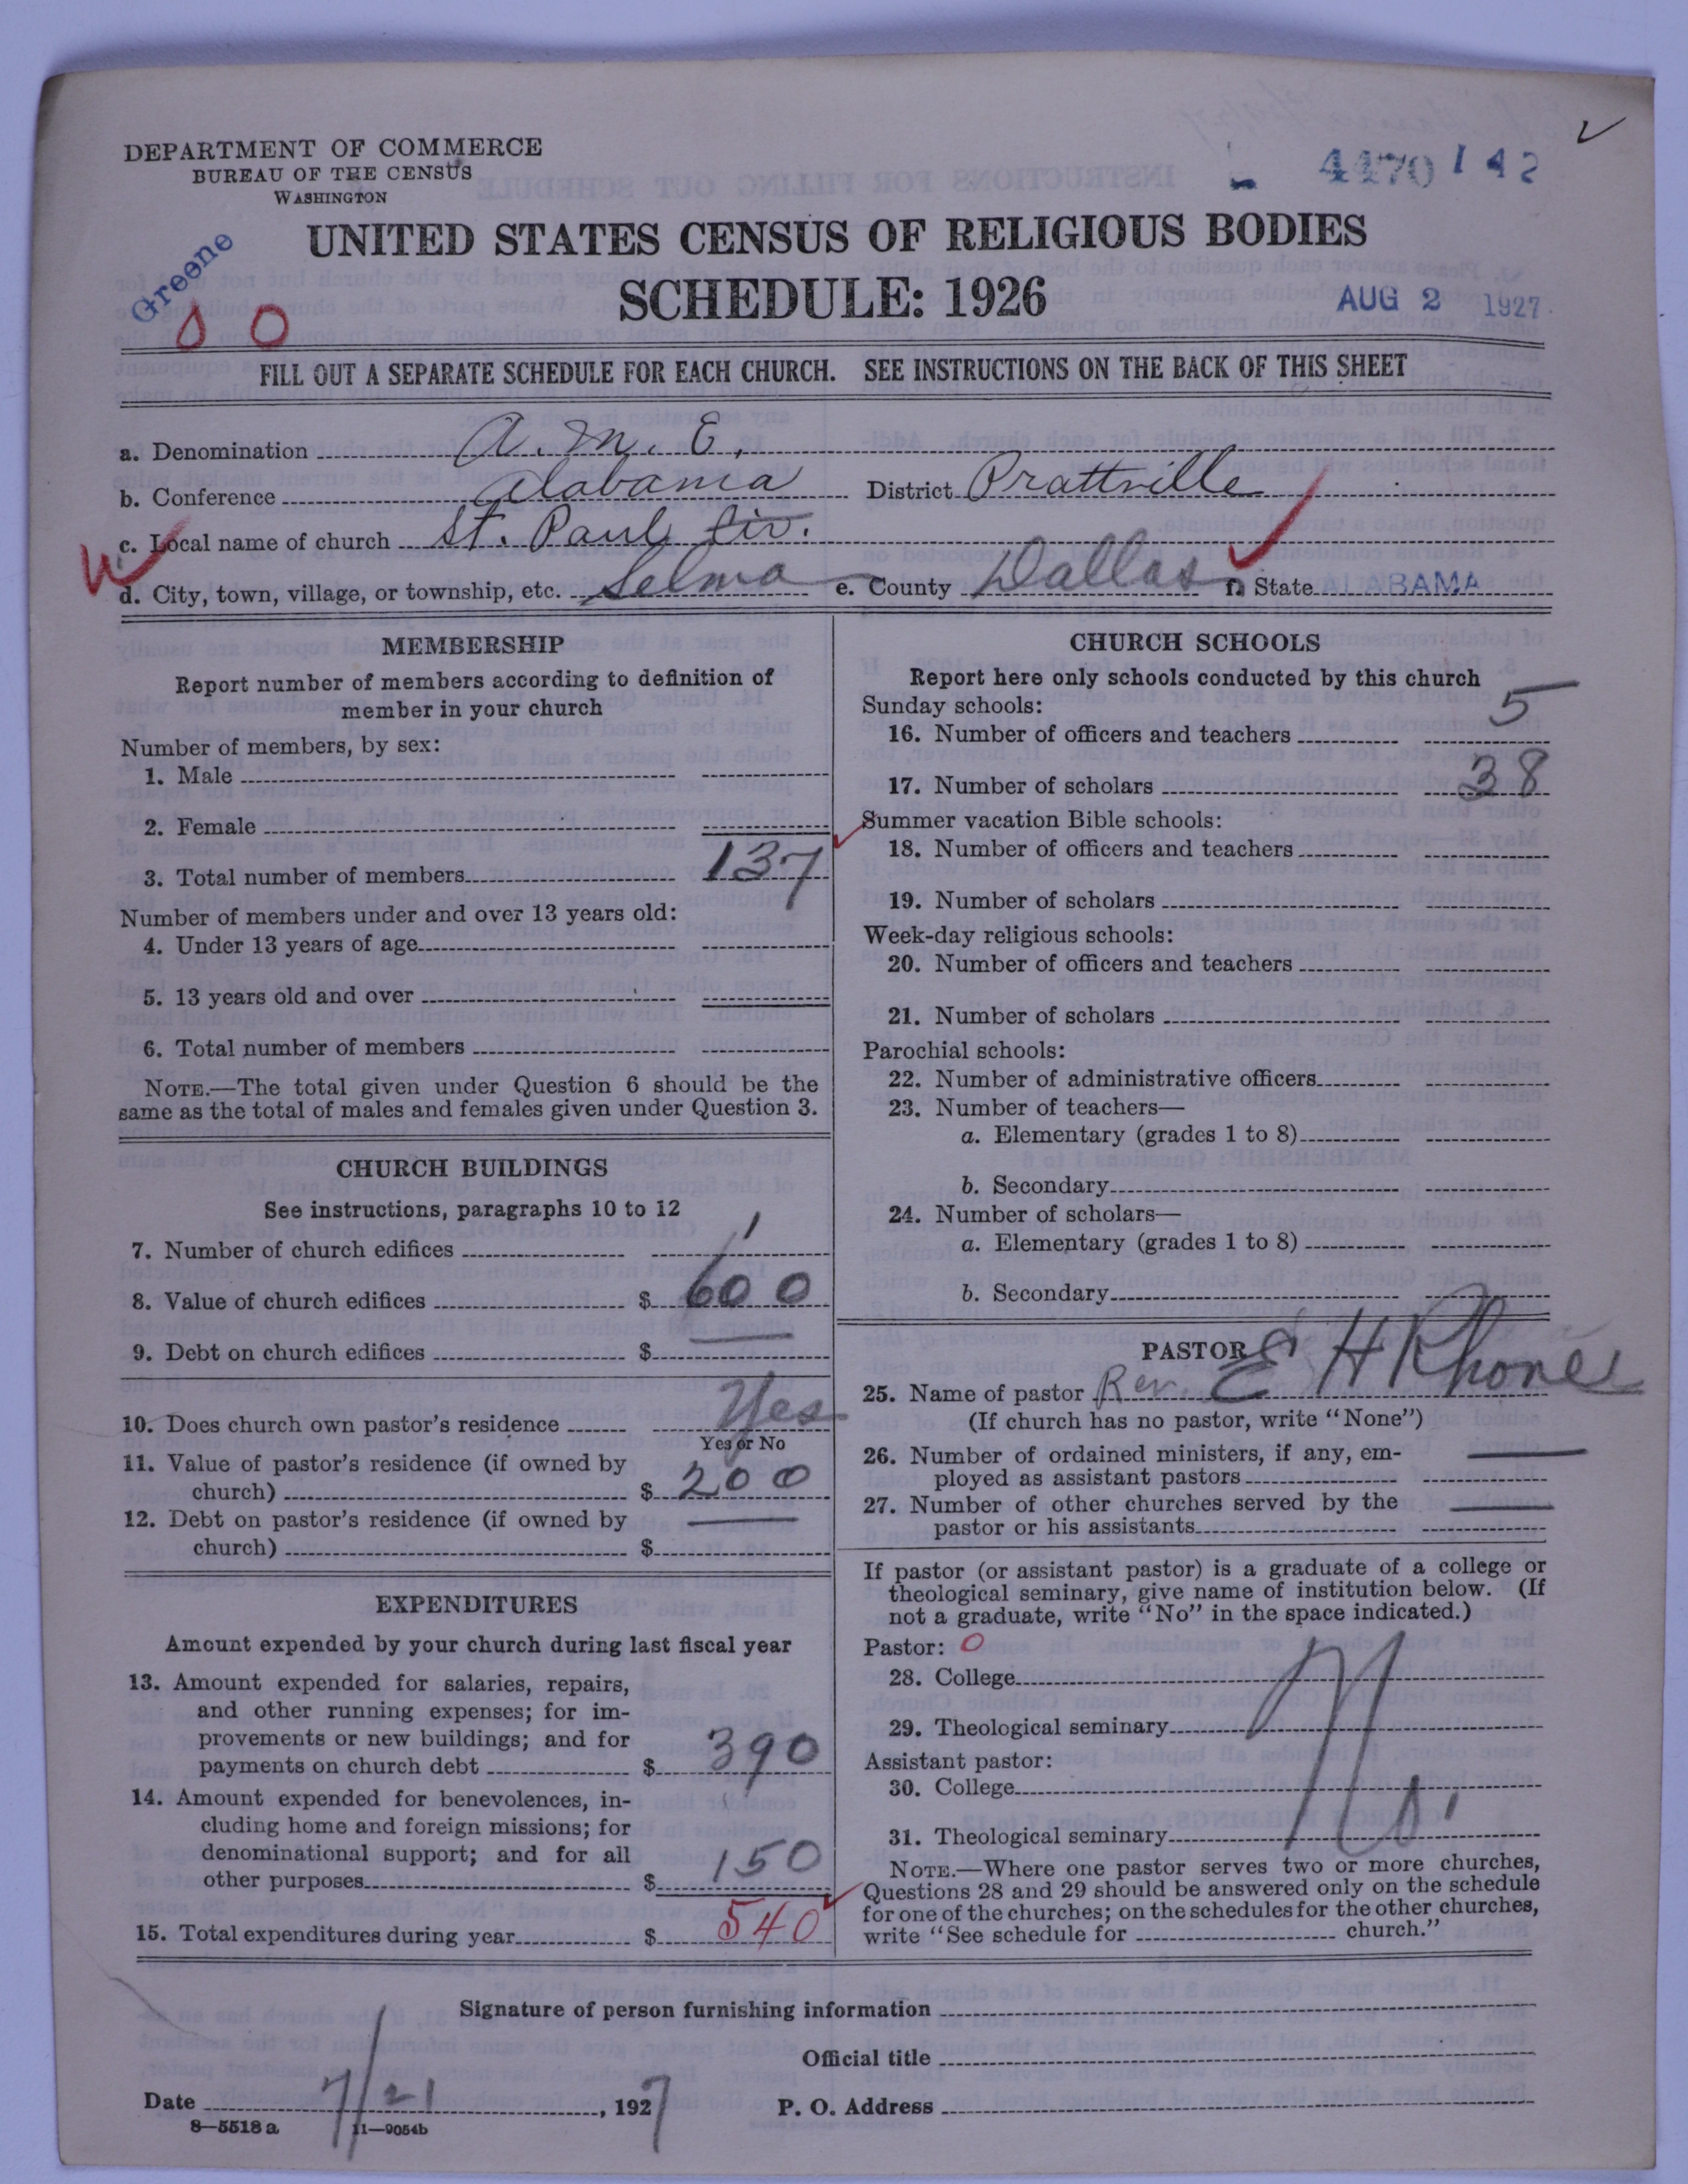 DEPARTMENT OF COMMERCE
BUREAU OF THE CENSUS
WASHINGTON
4470 142
UNITED STATES CENSUS OF RELIGIOUS BODIES
Greene
SCHEDULE: 1926
AUG 2 1927
0 0
FILL OUT A SEPARATE SCHEDULE FOR EACH CHURCH. SEE INSTRUCTIONS ON THE BACK OF THIS SHEET
a. Denomination A. M. E.
b. Conference Alabama District Prattville
c. Local name of church St. Paul Cir.
d. City, town, village, or township, etc. Selma e. County Dallas f. State ALABAMA
MEMBERSHIP
Report number of members according to definition of
member in your church
Number of members, by sex:
1. Male
2. Female
3. Total number of members 137
Number of members under and over 13 years old:
4. Under 13 years of age
5. 13 years old and over
6. Total number of members
NOTE.—The total given under Question 6 should be the
same as the total of males and females given under Question 3.
CHURCH BUILDINGS
See instructions, paragraphs 10 to 12
7. Number of church edifices 1
8. Value of church edifices $ 600
9. Debt on church edifices $
10. Does church own pastor's residence Yes
Yes or No
11. Value of pastor's residence (if owned by
church) $ 200
12. Debt on pastor's residence (if owned by
church) $
EXPENDITURES
Amount expended by your church during last fiscal year
13. Amount expended for salaries, repairs,
and other running expenses; for im-
provements or new buildings; and for
payments on church debt $ 390
14. Amount expended for benevolences, in-
cluding home and foreign missions; for
denominational support; and for all
other purposes $ 150
15. Total expenditures during year $ 540
CHURCH SCHOOLS
Report here only schools conducted by this church
Sunday schools:
16. Number of officers and teachers 5
17. Number of scholars 38
Summer vacation Bible schools:
18. Number of officers and teachers
19. Number of scholars
Week-day religious schools:
20. Number of officers and teachers
21. Number of scholars
Parochial schools:
22. Number of administrative officers
23. Number of teachers—
a. Elementary (grades 1 to 8)
b. Secondary
24. Number of scholars—
a. Elementary (grades 1 to 8)
b. Secondary
PASTOR
25. Name of pastor Rev. E H Rhone
(If church has no pastor, write "None")
26. Number of ordained ministers, if any, em-
ployed as assistant pastors
27. Number of other churches served by the
pastor or his assistants
If pastor (or assistant pastor) is a graduate of a college or
theological seminary, give name of institution below. (If
not a graduate, write "No" in the space indicated.)
Pastor: 0
28. College
29. Theological seminary
Assistant pastor:
30. College
31. Theological seminary
NOTE.—Where one pastor serves two or more churches,
Questions 28 and 29 should be answered only on the schedule
for one of the churches; on the schedules for the other churches,
write "See schedule for church."
Signature of person furnishing information
Official title
Date 7/21, 1927 P. O. Address
8—5518 a 11—9054b